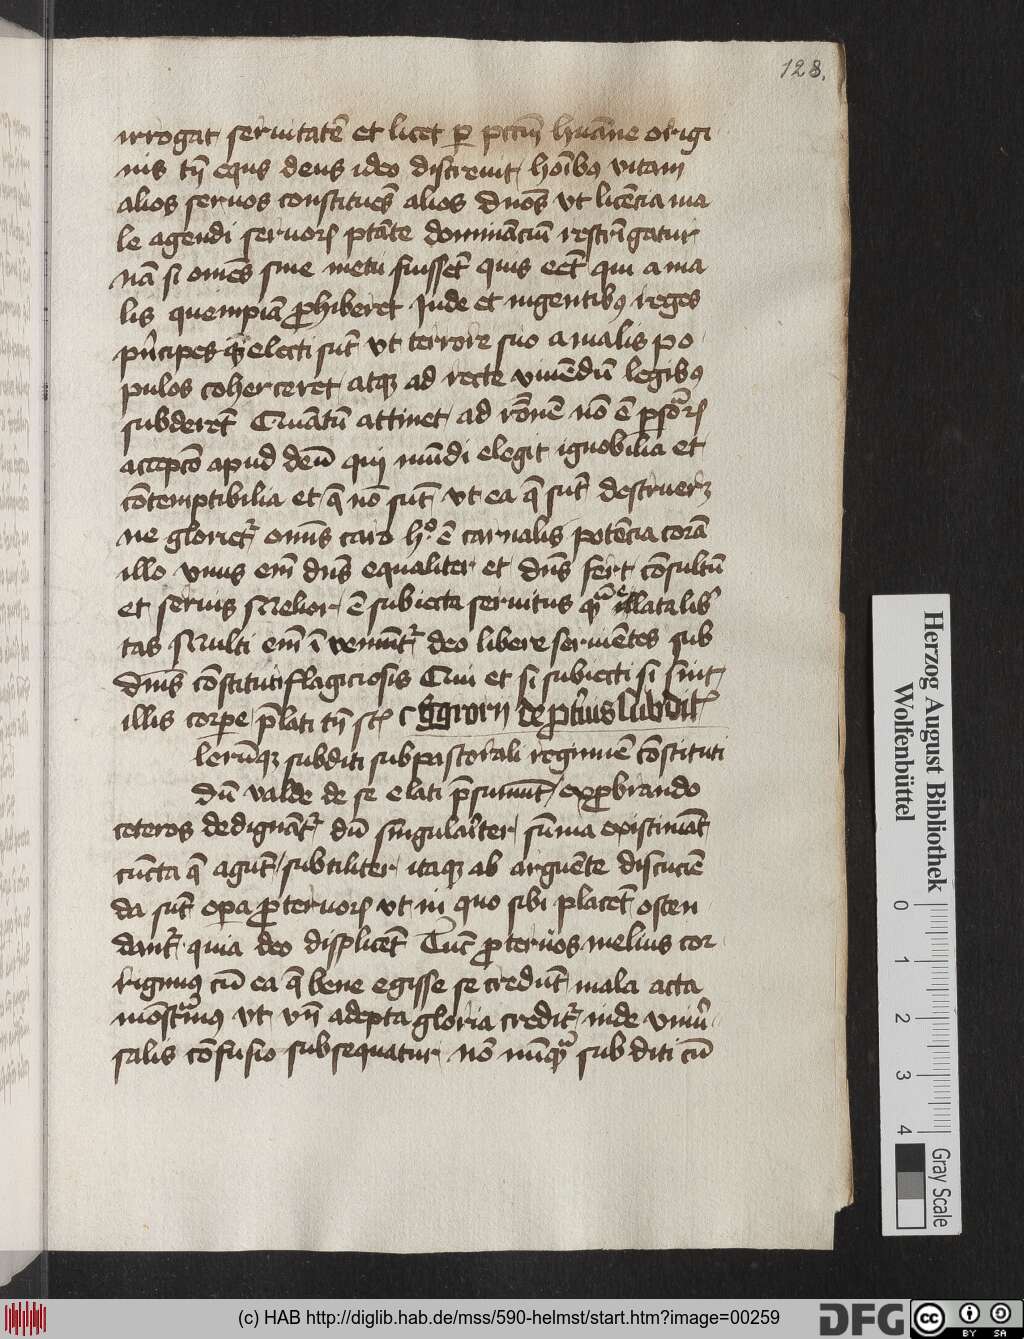 128.
irrogat seruitatē et licet ꝑ pctm̄ hūane origi
nis tn̄ equs deus ideo discreuit hoībꝰ vitam
alios seruos constitues̄ alios dnōs vt licēcia ma
le agendi seruorꝝ ptāte domināciū restrīgatur
nā si om̄es sine metu fuissēt quis eēt qui a ma
lis quempiā ꝓhiberet Inde et in gentibꝰ reges
pⁱncipes qꝫ electi sūt vt terrore suo a malis po
pulos coherceret atqꝫ ad recte viuēdū legibꝰ
subderēt Quātū attinet ad rōnē nō ē ꝑsonarꝝ
accepcō apud deū qui mūdi elegit ignobilia et
cōtemptibilia et q̄ nō sūt vt ea q̄ sūt destruerꝫ
ne glorietꝛ om̄is caro hͦ ē carnalis potēcia corā
illo vnus em̄ dn̄s equaliter et dn̄s fert cōsultū
et seruis Melior ē subiecta seruitus qᵃ̄ illata lib̄
tas Multi em̄ īveniūtꝛ deo libere seruiētes sub
dnīs cōstituti flagiciosis Qui et si subiecti si sint
illis corpe p̄lati tn̄ st̄ Ggrorii de ꝓtuis subdit͛
lerūqꝫ subditi sub pastorali regimiē cōstituti
dū valde de se elati p̄sumūt exꝓbrando
ceteros dedignātꝛ dū singulariter sūma existimāt
cūcta q̄ agūt subtiliter itaqꝫ ab arguēte discuciē
da sūt oꝑa ꝓteruorꝝ vt in quo sibi placēt osten
dantꝛ quia deo displicēt Tūc ꝓteruos melius cor
rigimꝰ cū ea q̄ bene egisse se credūt mala acta
mōstramꝰ vt vn̄ adepta gloria creditꝛ inde vniū
salis cōfusio subsequatur nō nūqᵃ̄ subditi cū
Herzog August Bibliothek
Wolfenbüttel
0 1 2 3 4
Gray Scale
(c) HAB http://diglib.hab.de/mss/590-helmst/start.htm?image=00259
DFG
cc BY SA